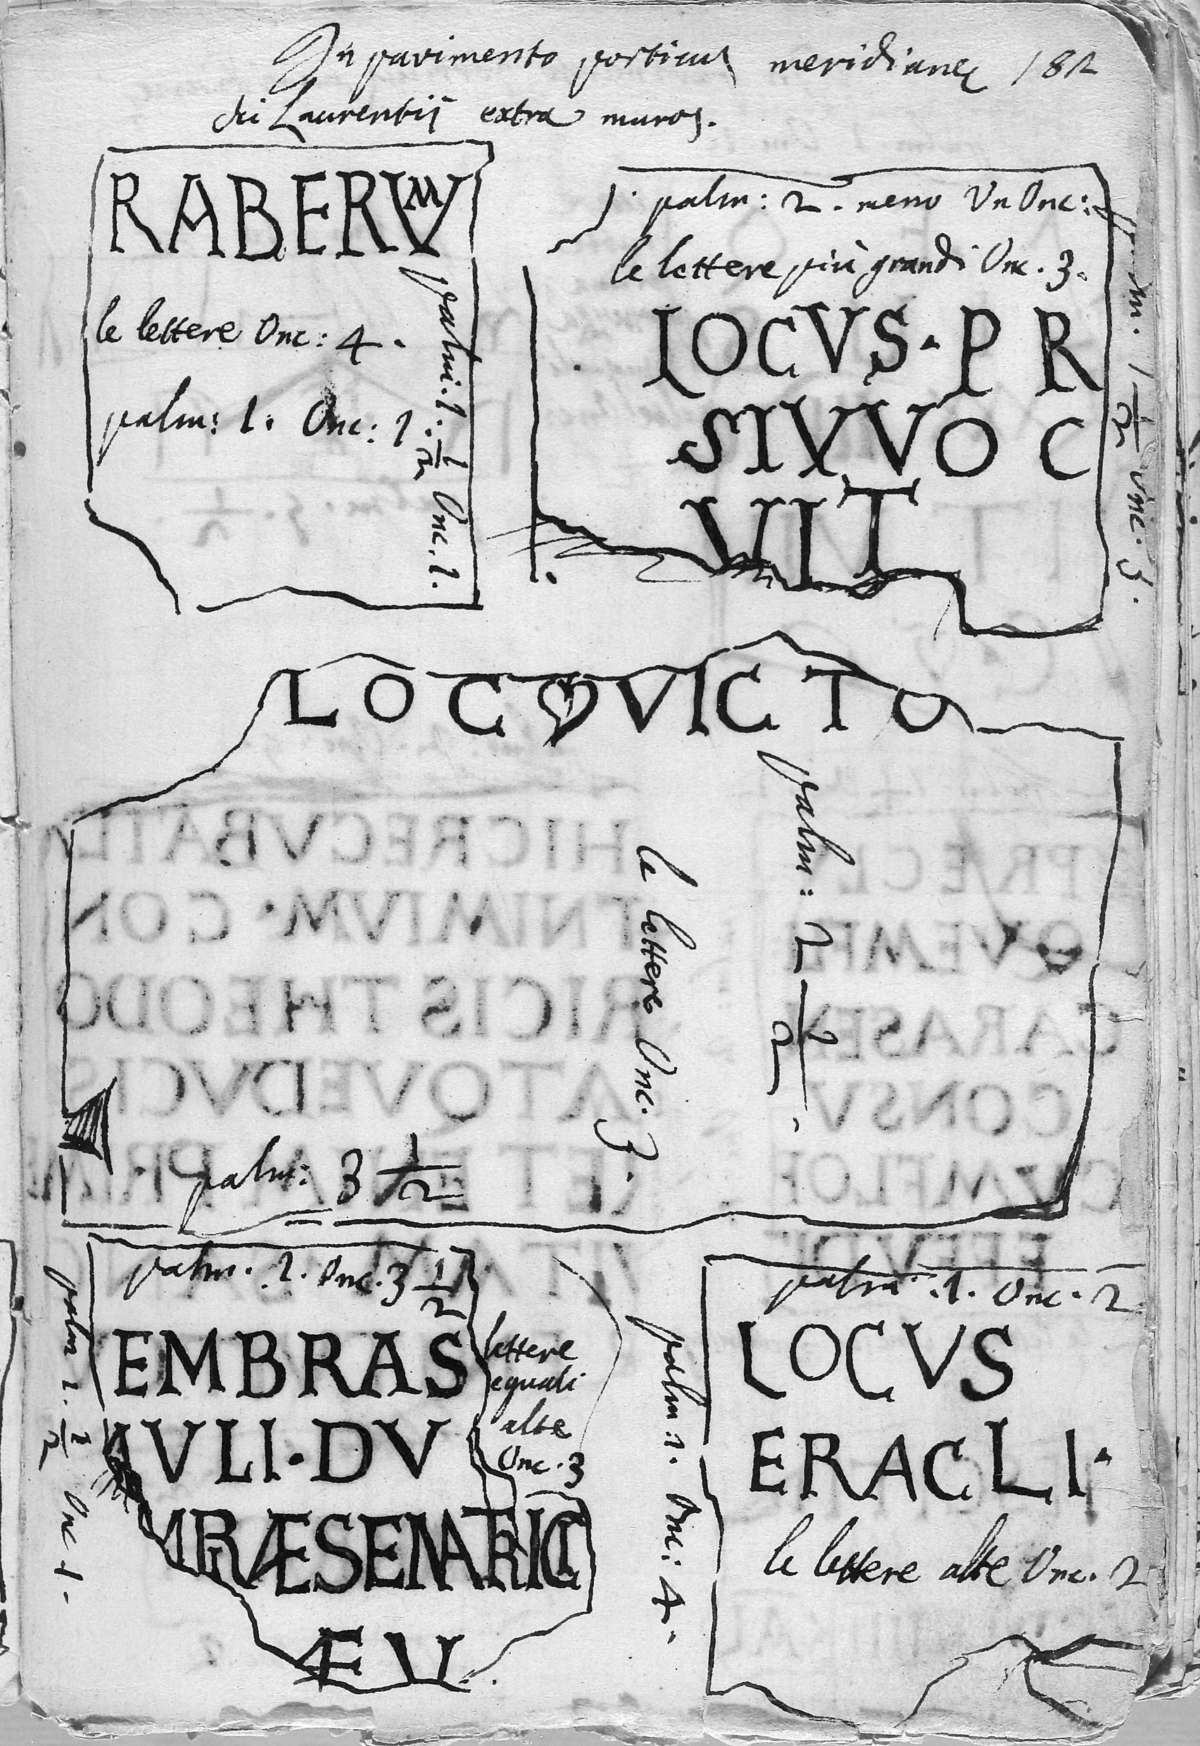 In pavimento porticus meridianę 182
Sti Laurentij extra muros.
RABERVM
le lettere Onc: 4.
palm: 1. Onc: 1
palm. 1. 1/2 Onc. 1.
palm: 2. meno Vn Onc:
le lettere più grandi Onc. 3.
LOCVS·P R
SIVVO C
VIT
palm. 1 1/2 Onc. 3.
LOC VICTO
palm: 2 1/2.
le lettere Onc. 3.
palm: 3 1/2
palm. 1. Onc. 3 1/2
EMBRAS
VLI·DV
RÆSENATRICI
ÆV
lettere
equali
alte
Onc. 3
palm 1. 1/2 Onc 1.
palm. 1. Onc. 2
LOCVS
ERACLI·
le lettere alte Onc. 2
palm 1. Onc: 4.